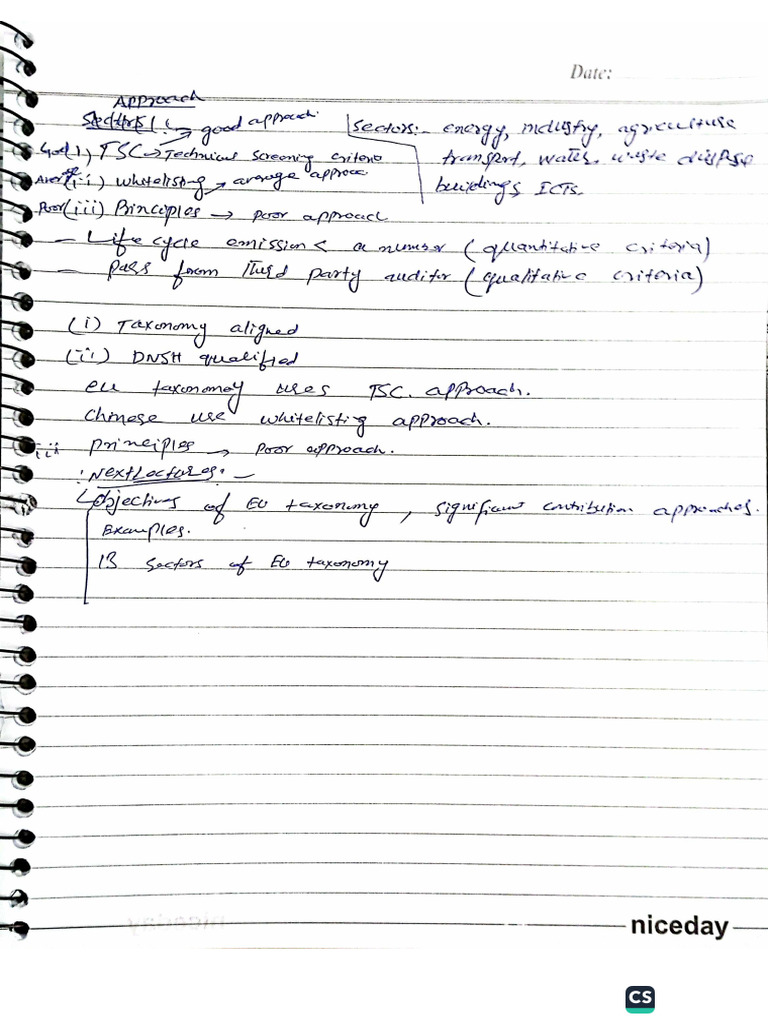 Date:
Approach
Sectors :
→ good approach
(i) TSC → Technical Screening criteria
Good
(ii) whitelisting → average approach
(iii) Principles → poor approach
Poor
Sectors:- energy, industry, agriculture
transport, water, waste dispose
buildings, ICTs.
- Life cycle emission < a number (quantitative criteria)
- Pass from third party auditor (qualitative criteria)
(i) Taxonomy aligned
(ii) DNSH qualified
eu taxonomy uses TSC. approach.
Chinese use whitelisting approach.
iii principles → poor approach.
: Next Lectures: -
Objectives of EU taxonomy, significant contribution approaches.
Examples.
13 sectors of EU taxonomy
niceday
CS